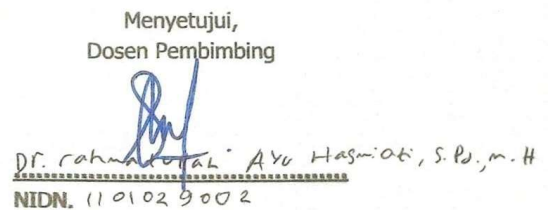 Menyetujui,
Dosen Pembimbing
Dr. rahmatullah Ayu Hasmiati, S.Pd., M.H
NIDN. 1101029002